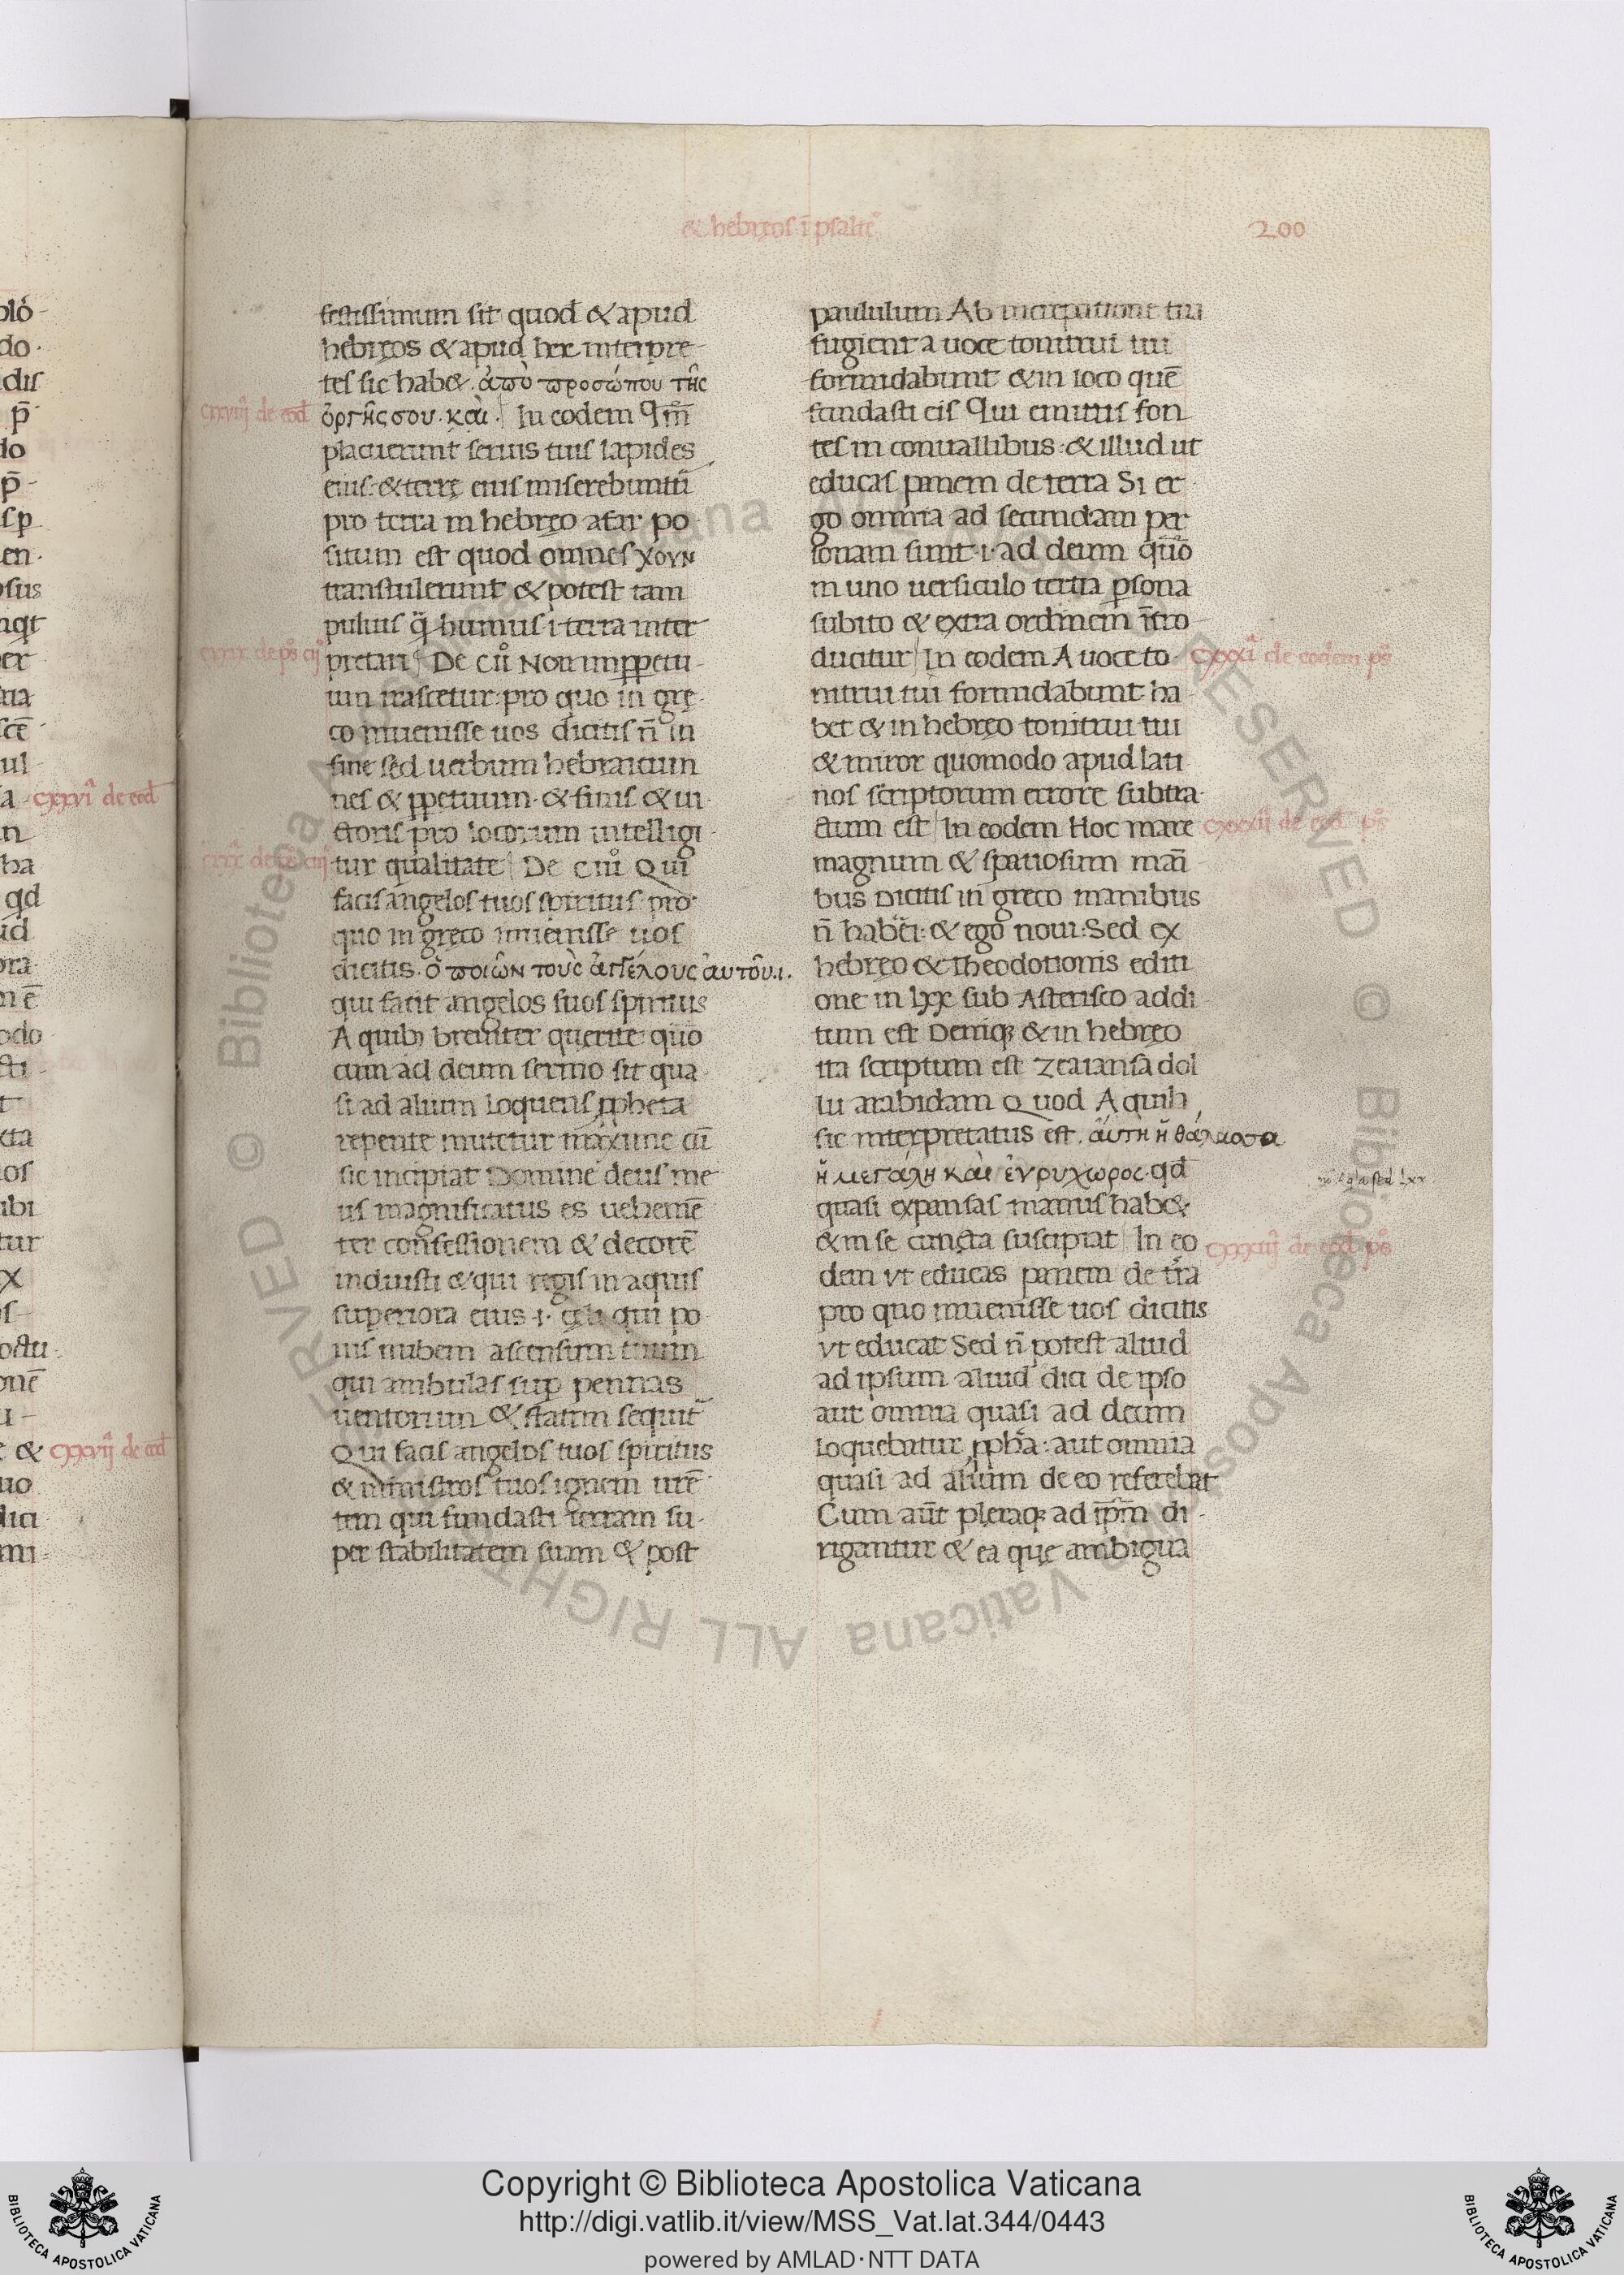 & hebręos ī psalte᷑
200
festissimum sit quod & apud
hebręos & apud lxx interpre-
tes sic hab&. ἀπὸ προσώπου τῆς
cxxviij de eod̄
ὀργῆς σου. καὶ. In eodem Qm̄
placuerunt seruis tuis lapides
eius: & terrę eius miserebuntur̄
pro terra in hebręo afar po-
situm est quod omnes χουν
transtulerunt & potest tam
puluis q̄ humus .i. terra inter
cxxix de ps̊ cij
pretari De CIİ Non imppetu-
um irascetur: pro quo in grę-
co inuenisse uos dicitis n̄ in
fine sed uerbum hebraicum
nes & ppetuum. & finis & ui-
ctoris pro locorum intelligi-
tur qualitate De CIII Qui
facis angelos tuos spiritus: pro
quo in gręco inuenisse uos
dicitis. ὁ ποιῶν τοὺς ἀγγέλους ἀυτοῦ .i.
qui facit angelos suos spiritus
A quib; breuiter querite: quo᷑
cum ad deum sermo sit qua-
si ad alium loquens ppheta
repente mutetur maxime cū
sic incipiat Domine deus me-
us magnificatus es uehemē
ter confessionem & decorē
induisti & qui tegis in aquis
superiora eius .i. cęli qui po-
nis nubem ascensum tuum
qui ambulas sup pennas
uentorum & statim sequit᷑
Qui facis angelos tuos spiritus
& ministros tuos ignem urē-
tem qui fundasti terram su-
per stabilitatem suam & post
paululum Ab increpatione tua
fugient a uoce tonitrui tui
formidabunt & in loco quē
fundasti eis Qui emittis fon
tes in conuallibus: & illud ut
educas panem de terra Si er-
go omnia ad secundam per
sonam sunt .i. ad deum quō
in uno uersiculo tertia psona
subito & extra ordinem ītro-
ducitur In eodem A uoce to-
cxxxi de eodem ps̊
nitrui tui formidabunt: ha-
bet & in hebręo tonitrui tui
& miror quomodo apud lati
nos scriptorum errore subtra-
ctum est In eodem Hoc mare
cxxxij de eod ps̊
magnum & spatiosum man̄i
bus Dicitis in gręco manibus
n̄ haberi: & ego noui: Sed ex
hebręo & theodotionis editi
one in lxx sub Asterisco addi
tum est Deniq; & in hebręo
ita scriptum est Zeaiansa dol
lu arabidam Quod Aquila
sic interpretatus est. ἅυτη ἡ θάλασσα
ἡ μεγάλη καὶ ἐνρυχωρος. qd̄
quasi expansas manus hab&
& in se cuncta suscipiat In eo
cxxxiij de eod ps̊
dem vt educas panem de tr̄a
pro quo inuenisse uos dicitis
vt educat Sed n̄ potest aliud
ad ipsum aliud dici de ipso
aut omnia quasi ad deum
loquebatur ppha: aut omnia
quasi ad alium de eo referebat
Cum aūt pleraq; ad ip̄m di-
rigantur & ea que ambigua
Copyright © Biblioteca Apostolica Vaticana
http://digi.vatlib.it/view/MSS_Vat.lat.344/0443
powered by AMLAD·NTT DATA